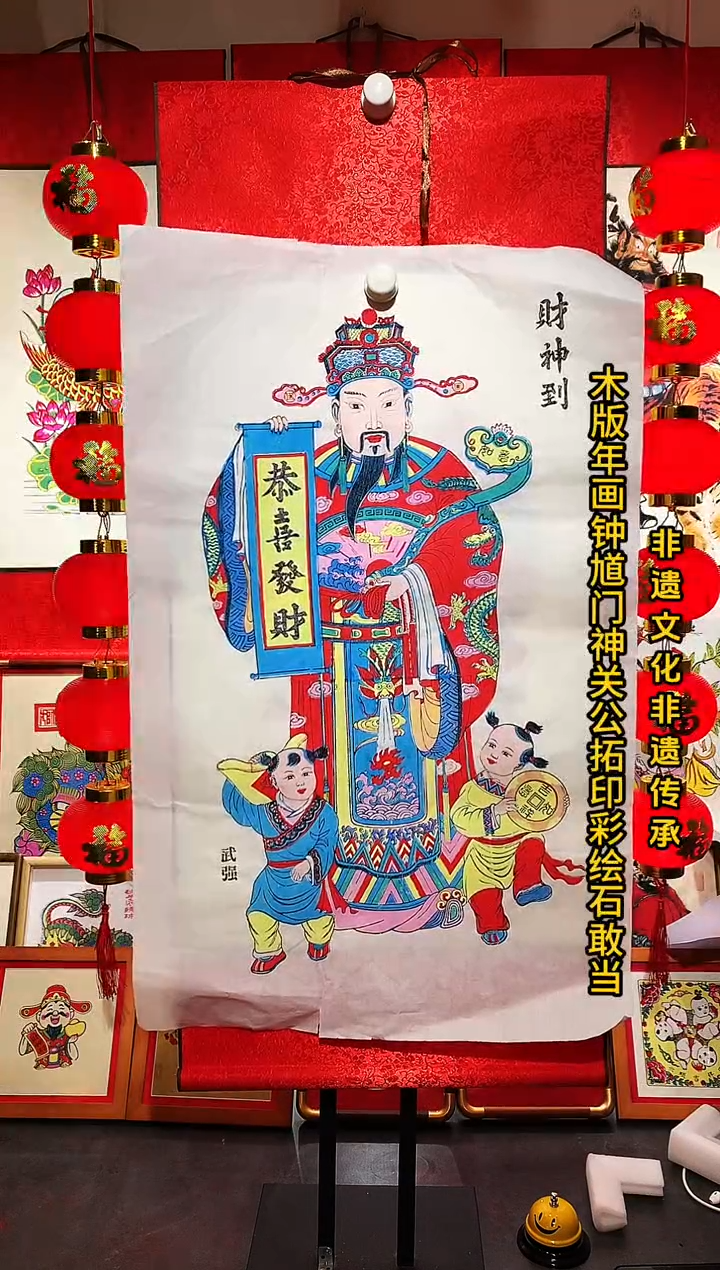 財神到
恭喜發財
武强
木版年画钟馗门神关公拓印彩绘石敢当
非遗文化非遗传承
福
福
福
福
福
福
福